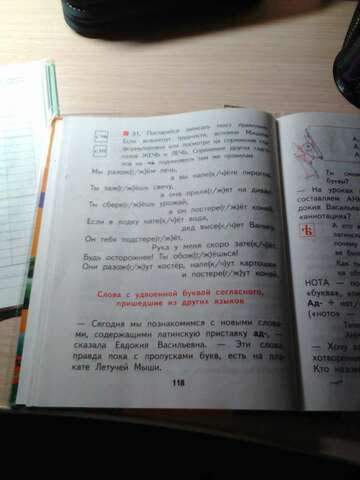 31. Постарайся записать текст правильно.
Если возникнут трудности, вспомни Мишины
формулировки или посмотри на спряжение гла-
голов ЖЕЧЬ и ПЕЧЬ. Спряжение других глаго-
лов на -чь подчиняется тем же правилам.
Мы разож(г/ж)ём печь,
а вы напе(к/ч)ёте пирогов.
Ты заж(г/ж)ёшь свечу,
а она приля(г/ж)ет на диван.
Ты сбере(г/ж)ёшь урожай,
а он постере(г/ж)ёт коней.
Если в лодку нате(к/ч)ёт вода,
дед высе(к/ч)ет Ваньку.
Он тебя подстере(г/ж)ёт.
Рука у меня скоро зате(к/ч)ёт.
Будь осторожнее! Ты обож(г/ж)ёшься!
Они разож(г/ж)ут костёр, напе(к/ч)ут картошки
и постере(г/ж)ут коней.
Слова с удвоенной буквой согласного,
пришедшие из других языков
— Сегодня мы познакомимся с новыми слова-
ми, содержащими латинскую приставку ад-, —
сказала Евдокия Васильевна. — Эти слова,
правда пока с пропусками букв, есть на пла-
кате Летучей Мыши.
118
Ты
буквы?
— На уроках
составляем АН
докия Василье
«аннотация»?
А его
латинск
почему
Как пи
НОТА —
«буква»,
Ад- +
(«ното» —
— Хочу
хотворени
Кто назов